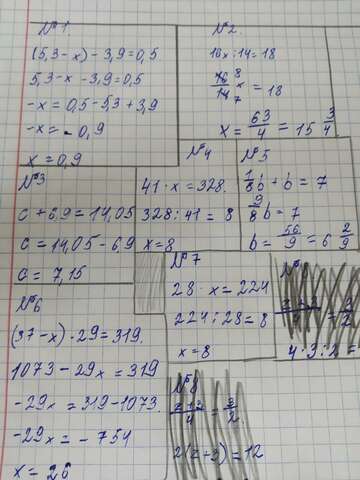 №1.
(5,3-x)-3,9=0,5
5,3-x-3,9=0,5
-x=0,5-5,3+3,9
-x=-0,9
x=0,9
№2.
16x:14=18
16/14 8/7 x = 18
x = 63/4 = 15 3/4
№3
c+6,9=14,05
c=14,05-6,9
c=7,15
№4
41·x=328.
328:41=8
x=8
№5
1/8 b + b = 7
9/8 b = 7
b = 56/9 = 6 2/9
№6
(37-x)·29=319.
1073-29x=319
-29x=319-1073.
-29x=-754
x=26
№7
28·x=224
224:28=8
x=8
4·3:2=
№8
z+3/4 = 3/2
2(z+3)=12